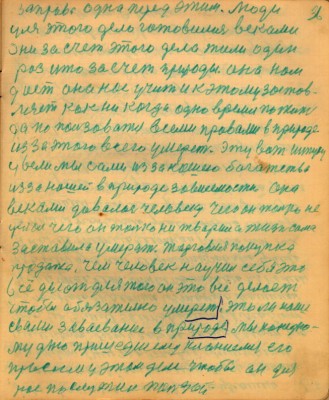 заправе одна перед этим. Люди
для этого дело готовился веками
Они за счет этого дела жили один
раз и то за счет природы. она нам
дает она нас учит и к этому застав-
ляет как ни когда одно время пожит
да попользоватя всеми правами в природе
из за этого всего умереть. Эту вот штуку
ввели мы сами из за нашего богатства
из за нашей в природе зависмости она
веками давалось человеку чего он только не
делал чего он только не творил а жизь сама
заставила умерать. Торговля покупка
продажа, чем человек научил себя это
всё делать для того он это всё делает
чтобы обязательно умереть, это ли наше
с вами завоевание в природе. мы каждо-
му дню пришедшему кланиемся его
просим у этом деле чтобы он для
нас послужил